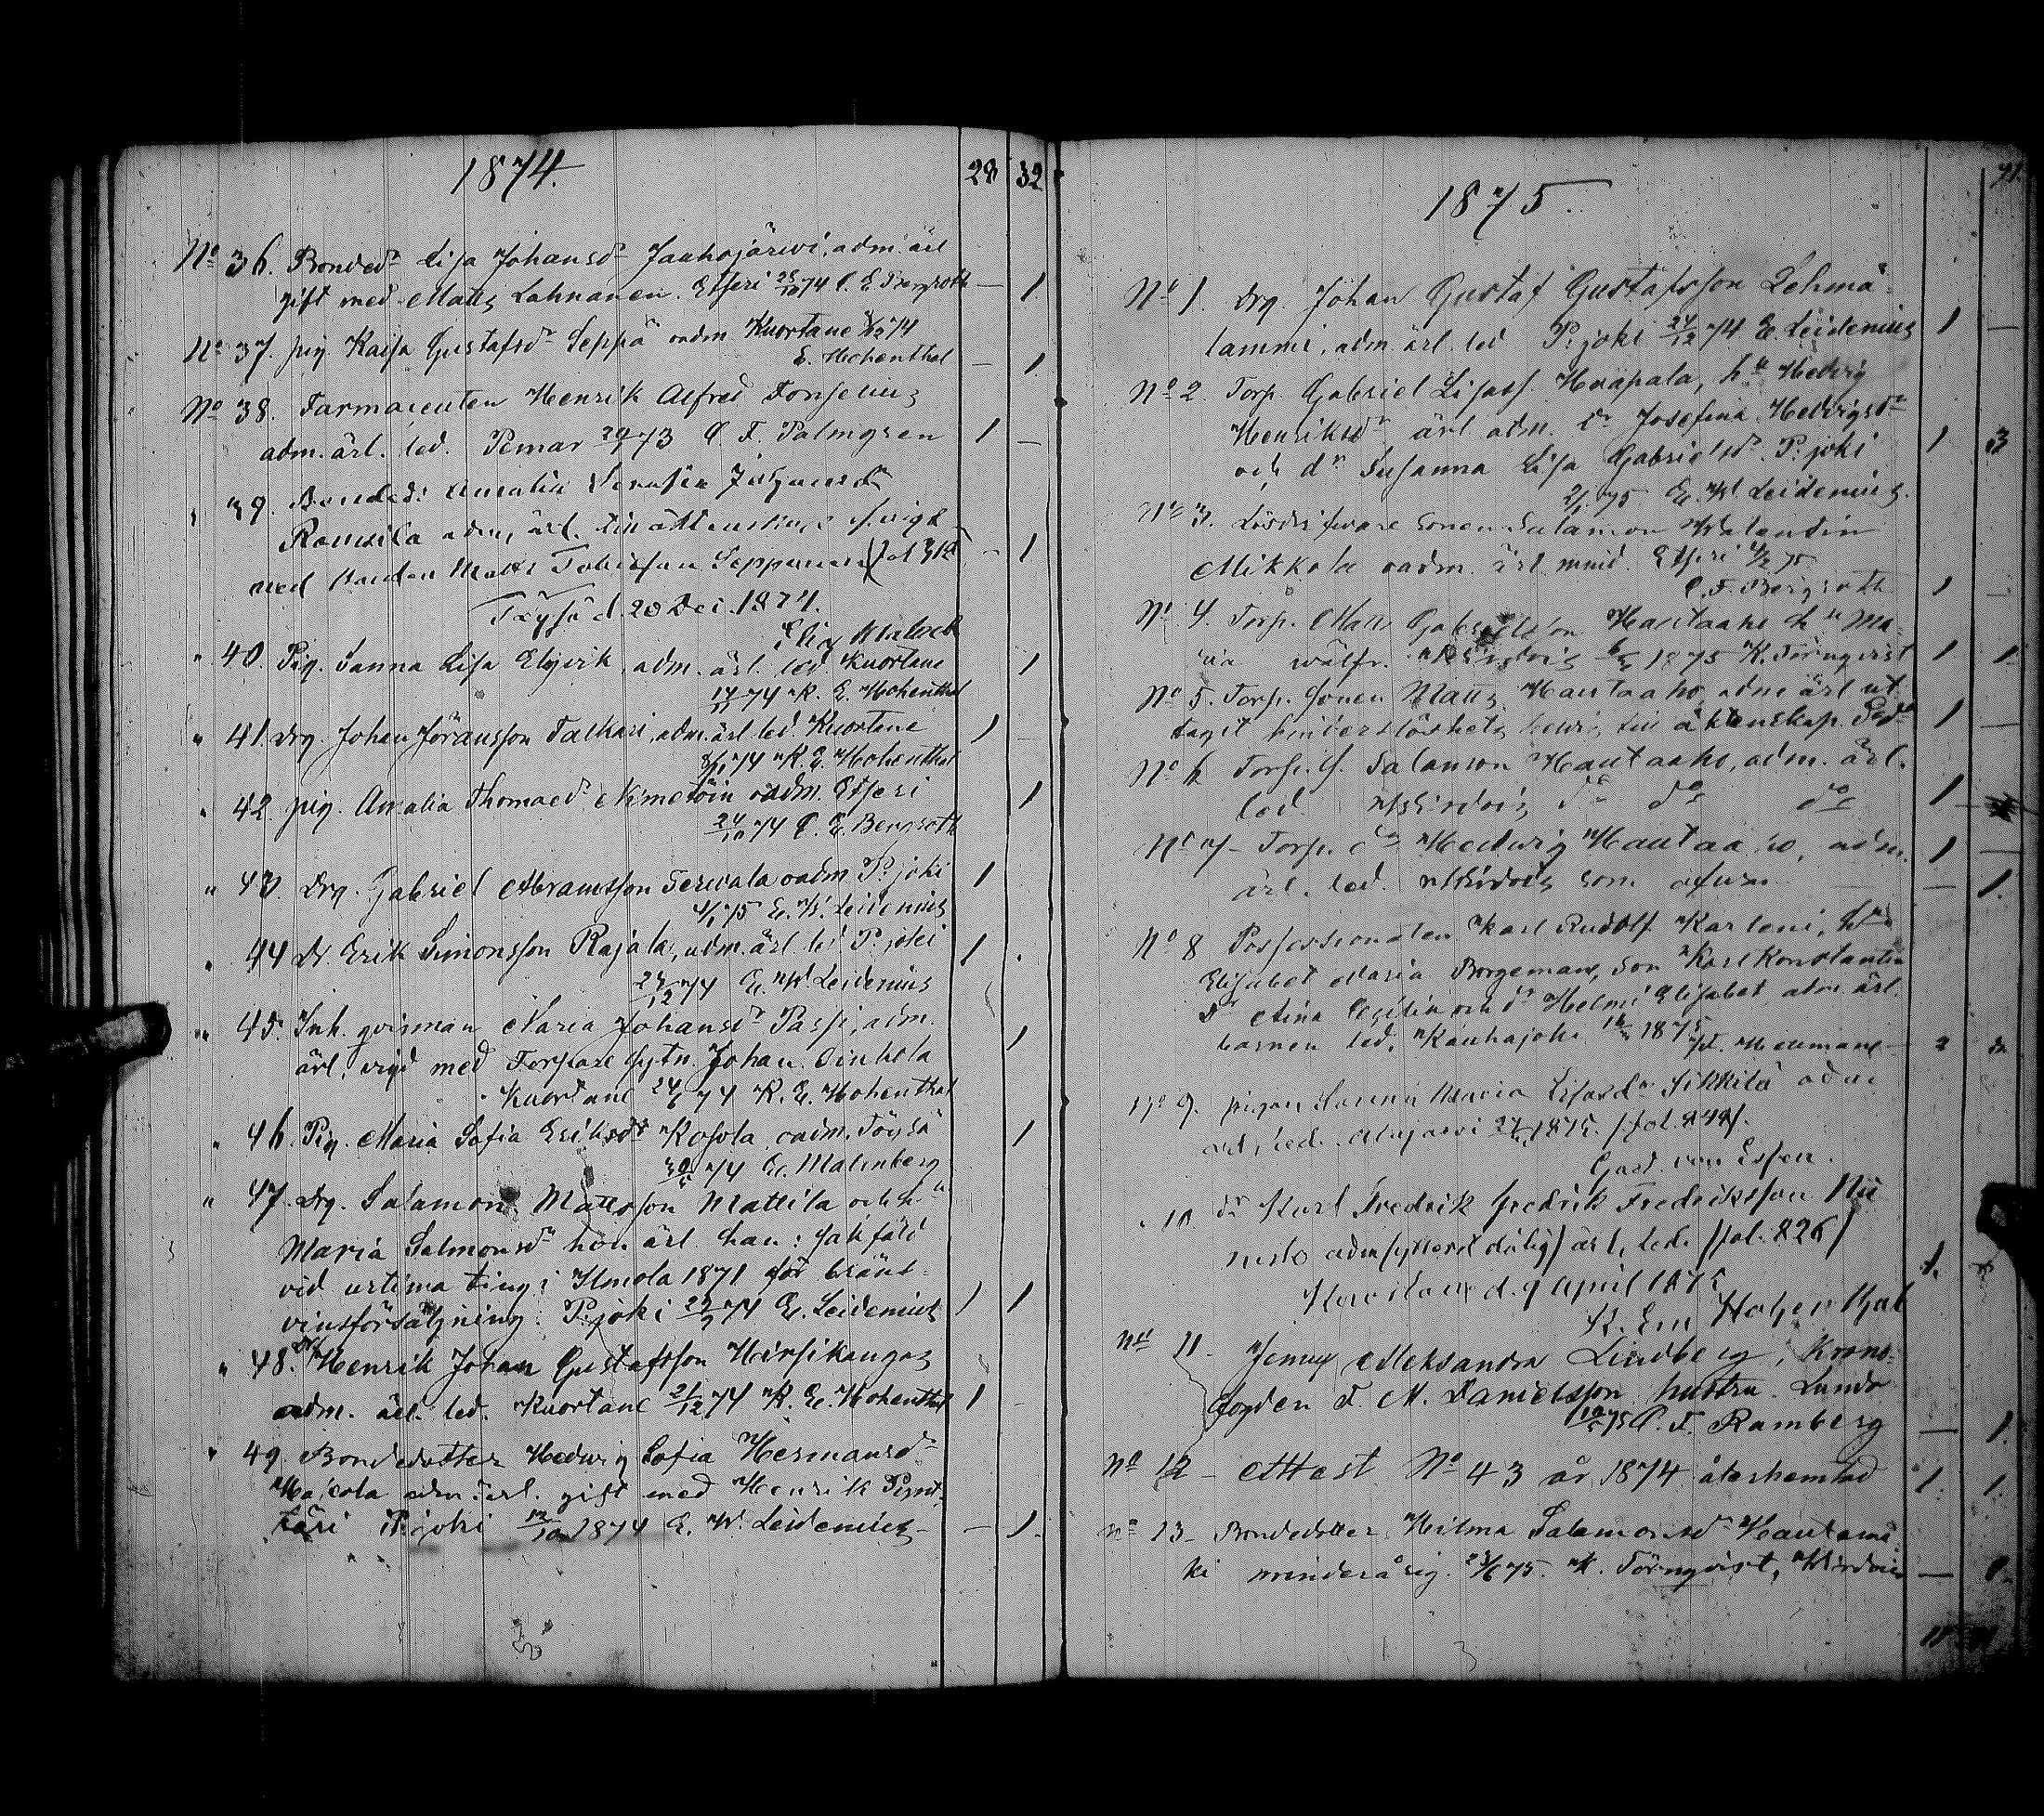 1874. 28 32
No 36. Bonded:r Lisa Johansd:r Jauhojärwi, adm. ärl
gift med Matts Lahnanen. Etseri 25/10 74 C. E. Bergroth — 1.
No 37. pig. Kajsa Gustafsd:r Seppä oadm Kuortane 74
E. Hohenthal — 1.
No 38. Farmaceuten Henrik Alfred Forselius
adm. ärl. led. Pemar 73 C. F. Palmgren 1 —
" 39. Bonded: Amalia Serafia
adm, ärl. till äktenskap
med Matts Tobiasson Seppänen - 1
Töysä d. 20 Dec. 1874.
Malmb
" 40. Pig. Sanna Lisa Elgvik, adm. ärl. led. Kuortane 1
17/11 74 K. E. Hohenthal
" 41. Drg. Johan Göransson Talkari, adm. ärl led. Kuortane 1
8/11 74 K. E. Hohenthal
" 42. pig. Amalia Thomaed:r oadm. Etseri 1
24/10 74 C. E. Bergroth
" 43. Drg. Gabriel Abramsson Terwala oadm P:joki 1
4/1 75 E. W. Leidenius
" 44 Dr. Erik Simonsson Rajala, adm. ärl led P:joki 1
27/12 74 E. W. Leidenius
" 45. Inh. qvinnan Maria Johansd:r Passi, adm.
ärl. vigd med Torpare sytn. Johan 1
Kuortane 24/6 74 K. E. Hohenthal
" 46. Pig. Maria Sofia Eriksd:r Kosola, oadm. Töysä 1
74 E. Malmberg
" 47. Drg. Salamon Mattsson Mattila och h:u
Maria Salmonsd:r hon ärl. han: sakfäld
vid urtima ting i Ilmola 1871 för bränt
vinsförsäljning. P:joki 74 E. Leidenius 1 1
" 48. Henrik Johan Gustafsson Hirsikangas
adm. ärl. led. Kuortane 21/12 74 K. E. Hohenthal 1
" 49. Bondedotter Hedwig Sofia Hermansd:r
adm. ärl. gift med Henrik
P:joki 1874 E. W. Leidenius — — 1.
1875. 41.
No 1. Drg. Johan Gustaf Gustafsson Lehmä
lammi, adm. ärl. led P:joki 24/12 74 E. Leidenius 1 —
No 2. Torp. Gabriel Lisass. Haapala, h:u Hedvig
Henriksd:r ärl adm. d:r Josefina Hedvigsd:r
och d:r Susanna Lisa Gabrielsd:r. P:joki 1 3
2/1 75 E. W. Leidenius.
No 3. Lösdrifware sonen Salamon Walentin
Mikkola oadm. ärl. mind. Etseri 75
C. F. Bergroth 1 —
No 4. Torp. Matts Gabrielsson Hautaaho h:u Ma-
ria wälfr. Wirdois 1875 K. Törnqvist 1 1
No 5. Torp. sonen Matts Hautaaho, adm ärl ut
tagit hinderslöshets bewis till äktenskap. 1 —
No 6. Torp. s. Salamon Hautaaho, adm. ärl.
led. Wirdois d:o d:o d:o 1 —
No 7 - Torp. d:r Hedwig Hautaaho, adm. 1 —
ärl. led. Wirdois som ofwan — — 1.
No 8 Possessionaten Karl Rudolf Karleni, h:u
Elisabet Maria Borgeman, son Karl Konstantin
d:r Aina Cecilia och d:r Helmi Elisabet adm. ärl.
barnen led. Kauhajoki 1875
No 9. pigan Sanna Maria Lisasd:r oadm
ärl, led. Alajärwi 1875.
Gust. von Essen.
" 10. d:r Karl Fredrik Fredrik Fredriksson Nii
nisto adm (ytterst dålig) ärl, led. (fol. 826)
Kuortane d. 9 April 1875 1.
K. Em Hohenthal
No 11 - Jenny Aleksandra Lindberg, Krono-
fogden F. M. Danielsson hustru. Lundo
75 C. F. Ramberg — 1.
No 12 - Attest No 43 år 1874 återhemtad 1. 1.
No 13 - Bondedotter Hilma Salamonsd:r Hautamä
ki minderårig. 75. K. Törnqvist, Wirdois —